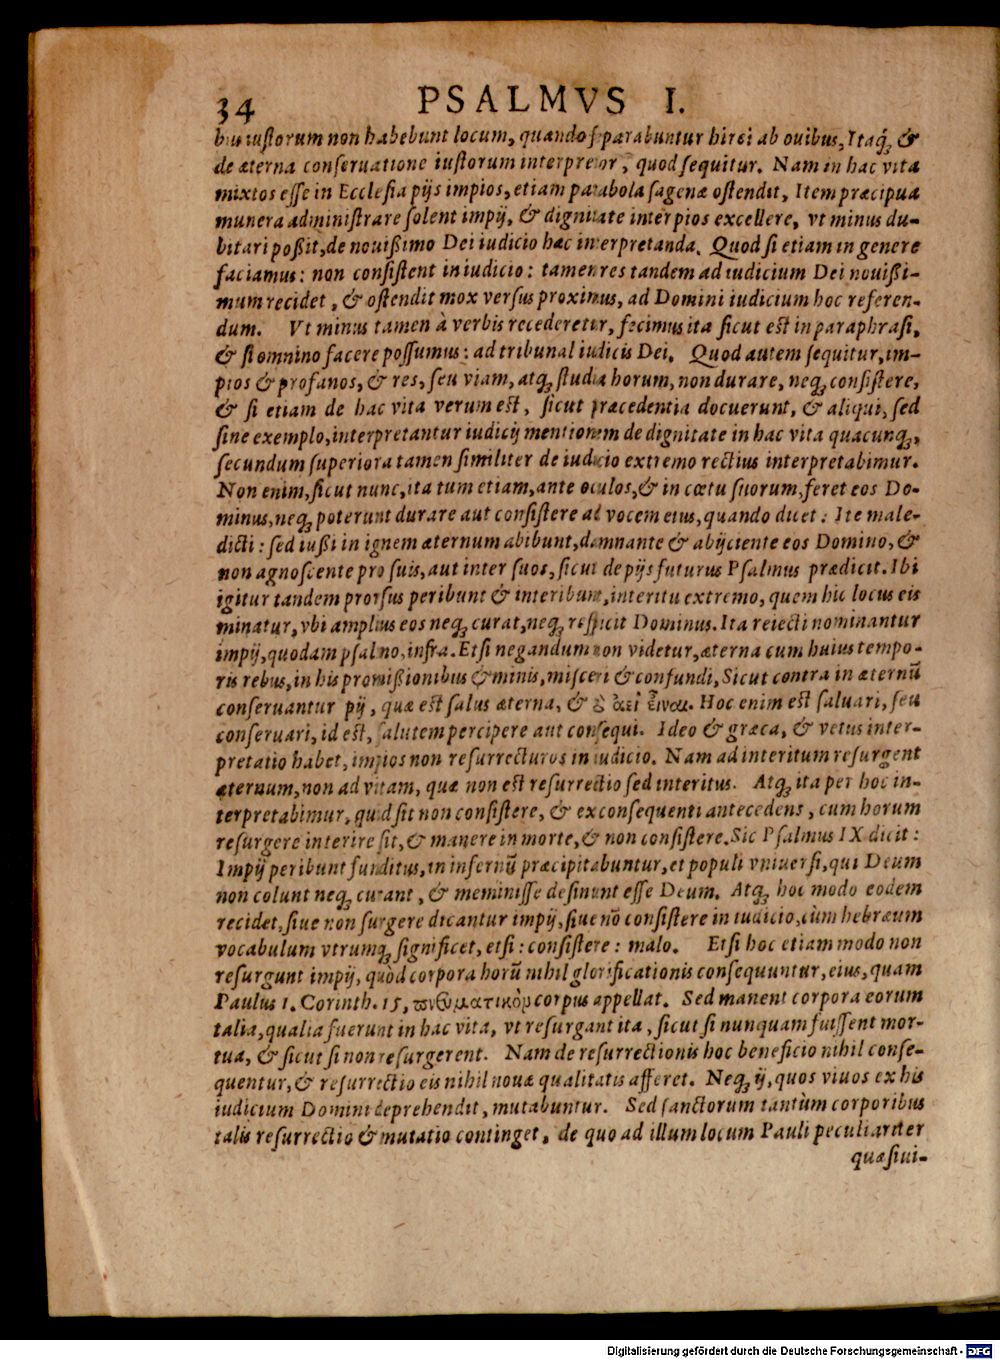 34 PSALMVS I.
bus iustorum non habebunt locum, quando separabuntur hirci ab ouibus, Itaq́₃ &
de æterna conseruatione iustorum interpretor, quod sequitur. Nam in hac vita
mixtos esse in Ecclesia pijs impios, etiam parabola sagenæ ostendit, Item præcipua
munera administrare solent impij, & dignitate inter pios excellere, vt minus du-
bitari poßit, de nouißimo Dei iudicio hæc interpretanda. Quod si etiam in genere
faciamus: non consistent in iudicio: tamen res tandem ad iudicium Dei nouißi-
mum recidet, & ostendit mox versus proximus, ad Domini iudicium hoc referen-
dum. Vt minus tamen à verbis recederetur, fecimus ita sicut est in paraphrasi,
& si omnino facere possumus: ad tribunal iudicis Dei. Quod autem sequitur, im-
pios & profanos, & res, seu viam, atq₃ studia horum, non durare, neq₃ consistere,
& si etiam de hac vita verum est, sicut præcedentia docuerunt, & aliqui, sed
sine exemplo, interpretantur iudicij mentionem de dignitate in hac vita quacunq₃,
secundum superiora tamen similiter de iudicio extremo rectius interpretabimur.
Non enim, sicut nunc, ita tum etiam, ante oculos, & in cœtu suorum, feret eos Do-
minus, neq₃ poterunt durare aut consistere ad vocem eius, quando dicet: Ite male-
dicti: sed iußi in ignem æternum abibunt, damnante & abijciente eos Domino, &
non agnoscente pro suis, aut inter suos, sicut de pijs futurus Psalmus prædicit. Ibi
igitur tandem prorsus peribunt & interibunt, interitu extremo, quem hic locus eis
minatur, vbi amplius eos neq₃ curat, neq₃ respicit Dominus. Ita reiecti nominantur
impij, quodam psalmo, infra. Etsi negandum non videtur, æterna cum huius tempo-
ris rebus, in his promißionibus & minis, misceri & confundi, Sicut contra in æternū
conseruantur pij, quæ est salus æterna, & ἀεὶ εἶναι. Hoc enim est saluari, seu
conseruari, id est, salutem percipere aut consequi. Ideo & græca, & vetus inter-
pretatio habet, impios non resurrecturos in iudicio. Nam ad interitum resurgent
æternum, non ad vitam, quæ non est resurrectio sed interitus. Atq₃ ita per hoc in-
terpretabimur, quid sit non consistere, & ex consequenti antecedens, cum horum
resurgere interire sit, & manere in morte, & non consistere. Sic Psalmus IX dicit:
Impij peribunt funditus, in infernū præcipitabuntur, et populi vniuersi, qui Deum
non colunt neq₃ curant, & meminisse desinunt esse Deum. Atq₃ hoc modo eodem
recidet, siue non surgere dicantur impij, siue nō consistere in iudicio, cùm hebræum
vocabulum vtrumq₃ significet, etsi: consistere: malo. Etsi hoc etiam modo non
resurgunt impij, quòd corpora horū nihil glorificationis consequuntur, eius, quam
Paulus 1. Corinth. 15, πνευματικὸν corpus appellat. Sed manent corpora eorum
talia, qualia fuerunt in hac vita, vt resurgant ita, sicut si nunquam fuissent mor-
tua, & sicut si non resurgerent. Nam de resurrectionis hoc beneficio nihil conse-
quentur, & resurrectio eis nihil nouæ qualitatis afferet. Neq₃ ij, quos viuos ex his
iudicium Domini deprehendit, mutabuntur. Sed sanctorum tantùm corporibus
talis resurrectio & mutatio continget, de quo ad illum locum Pauli peculiariter
quæsiui-
Digitalisierung gefördert durch die Deutsche Forschungsgemeinschaft - DFG